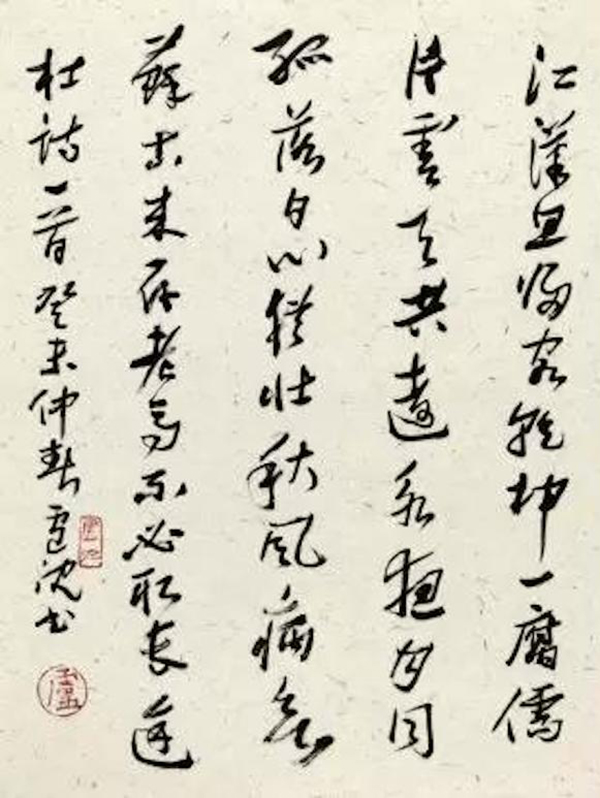 江漢思歸客乾坤一腐儒
片雲天共遠永夜月同
孤落日心猶壯秋風病欲
蘇古來存老馬不必取長途
杜詩一首癸未仲春盧沈书